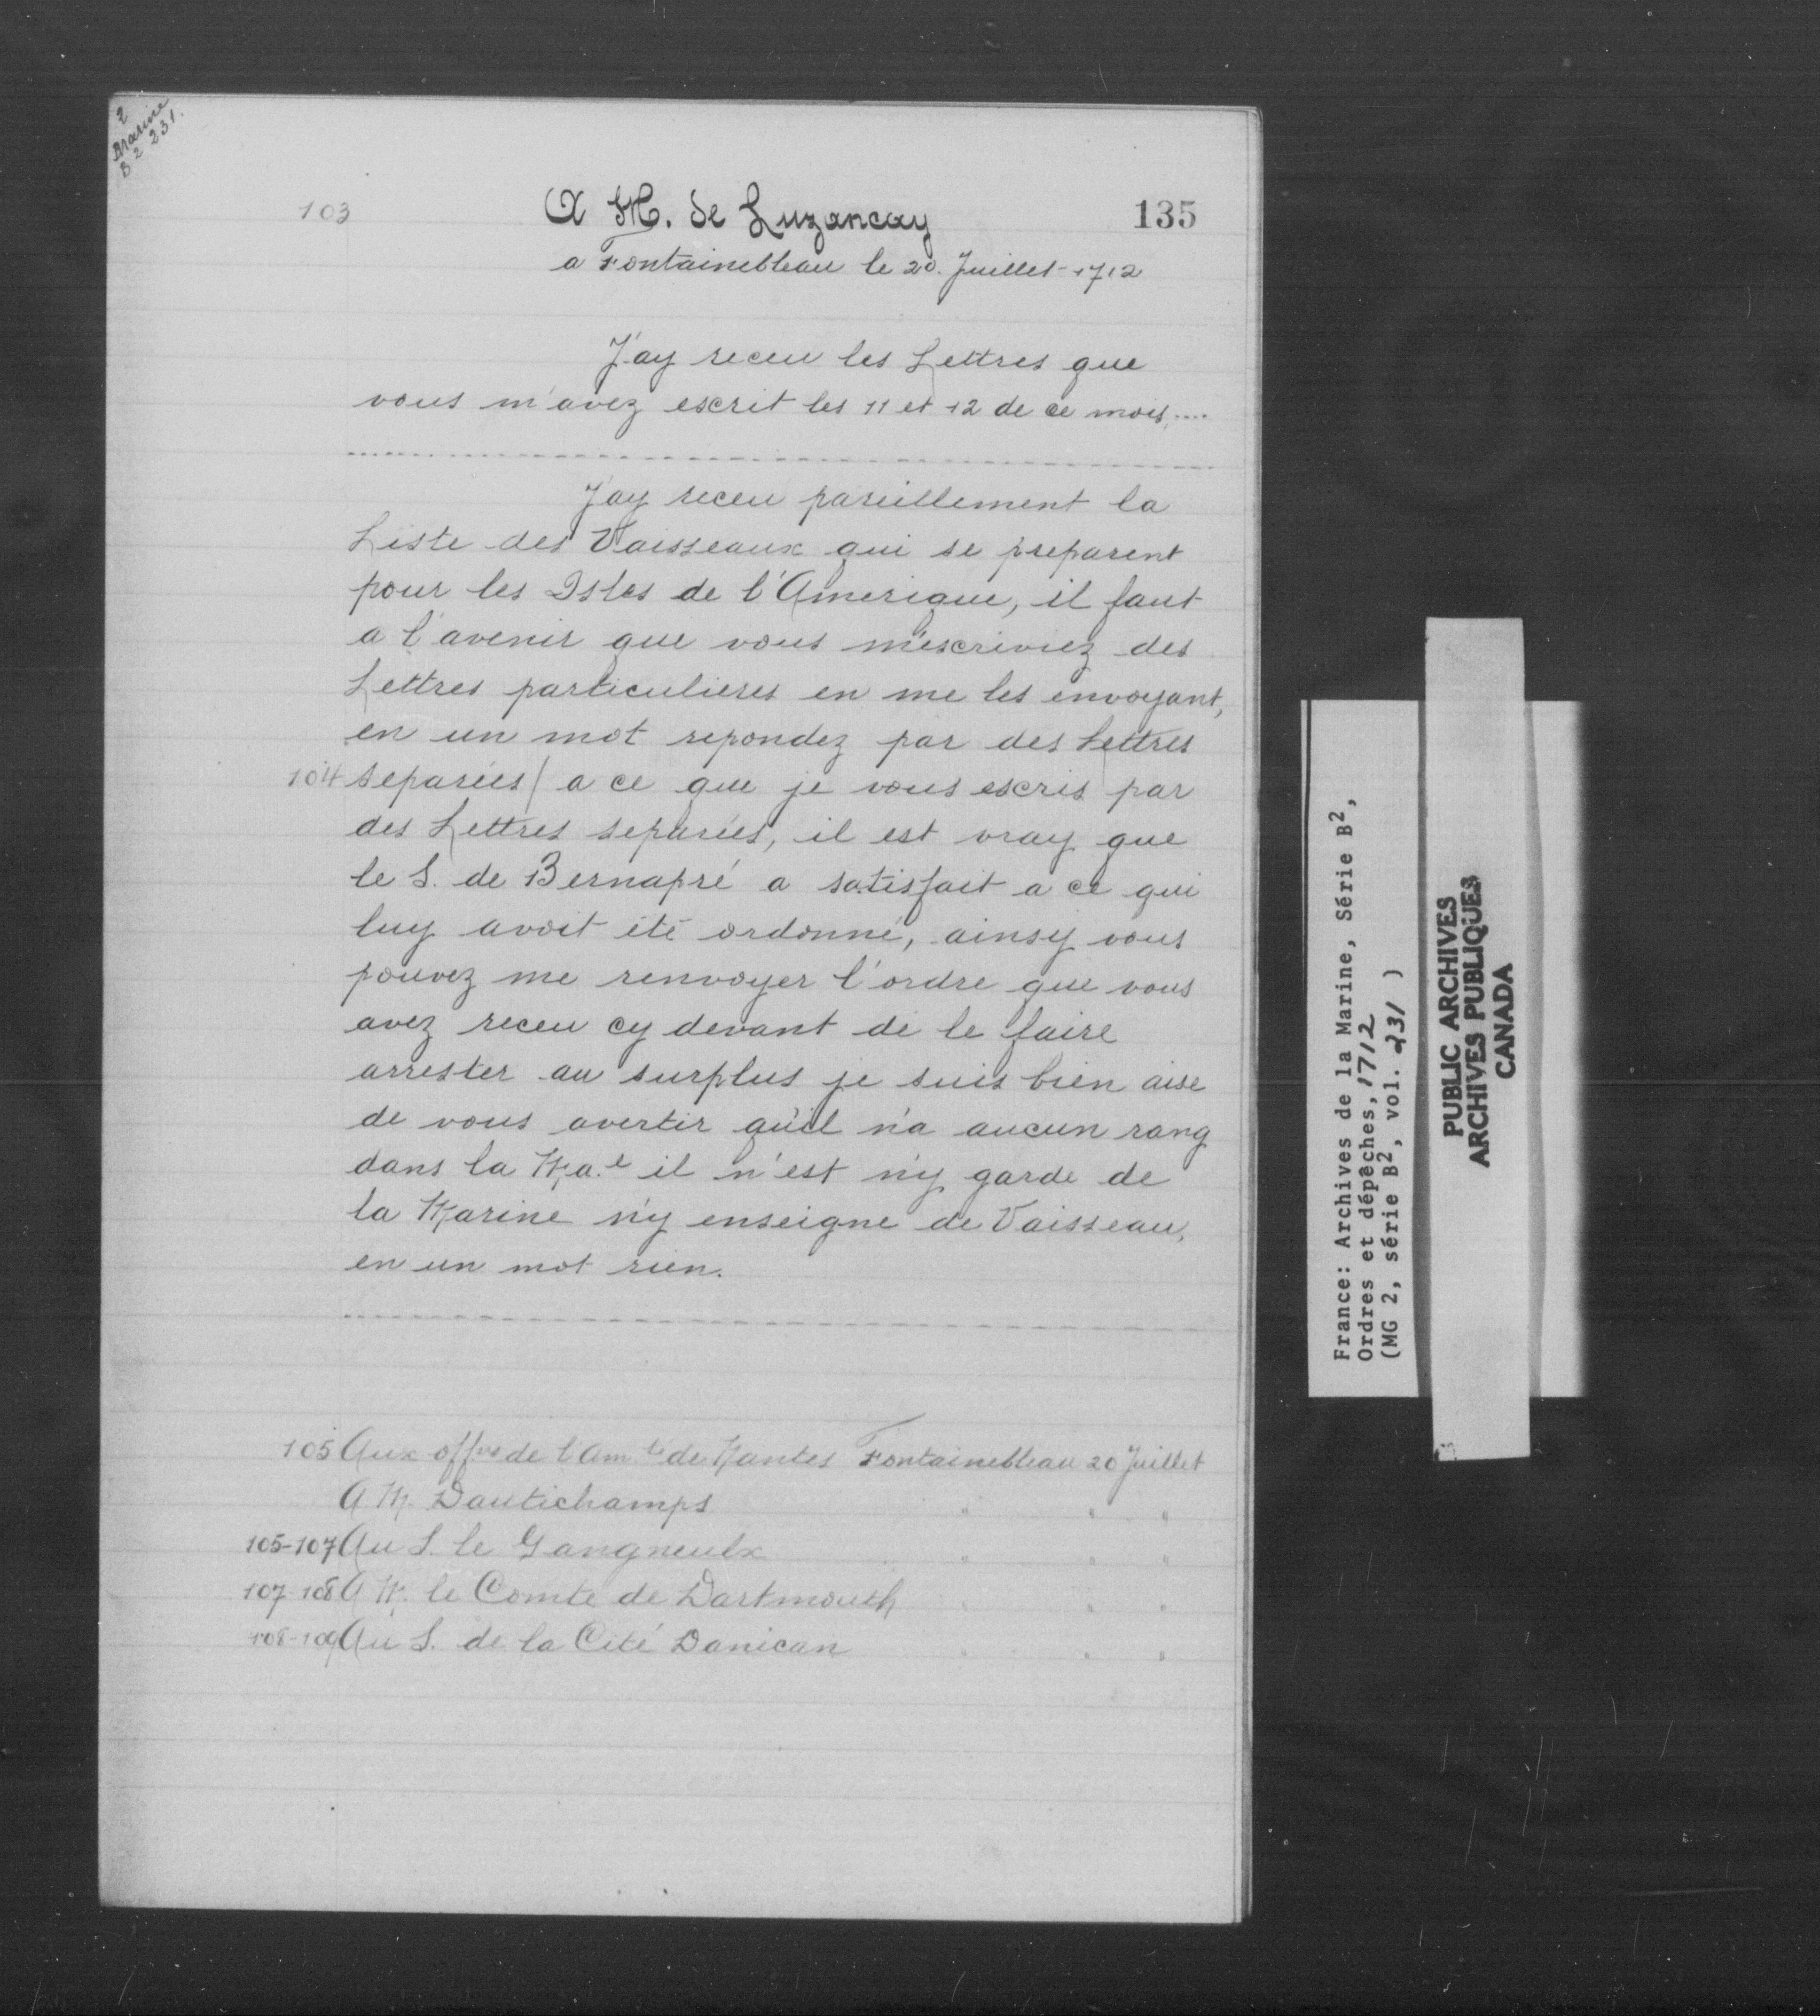 2
Marine
B 2 231.
103
A M. de Luzancay
135
a Fontainebleau le 20. Juillet 1712
J'ay receu les Lettres que
vous m'avez escrit les 11 et 12 de ce mois....
J'ay receu pareillement la
Liste des Vaisseaux qui se preparent
pour les Isles de l'Amerique, il faut
a l'avenir que vous m'escriviez des
Lettres particulieres en me les envoyant,
en un mot repondez par des Lettres
104 separées / a ce que je vous escris par
des Lettres separées, il est vray que
le S. de Bernapré a satisfait a ce qui
luy avoit été ordonné, ainsy vous
pouvez me renvoyer l'ordre que vous
avez receu cy devant de le faire
arrester au surplus je suis bien aise
de vous avertir qu'il n'a aucun rang
dans la Ma.e il n'est n'y garde de
la Marine n'y enseigne de Vaisseau,
en un mot rien.
105 Aux offres de l'Am.té de Nantes Fontainebleau 20 Juillet
A M. Dautichamps " " "
105-107 Au S. le Gangneulx " " "
107-108 A M. le Comte de Dartmouth " " "
108-109 Au S. de la Cité Danican " " "
France: Archives de la Marine, Série B2,
Ordres et dépêches, 1712
(MG 2, série B2, vol. 231 )
PUBLIC ARCHIVES
ARCHIVES PUBLIQUES
CANADA